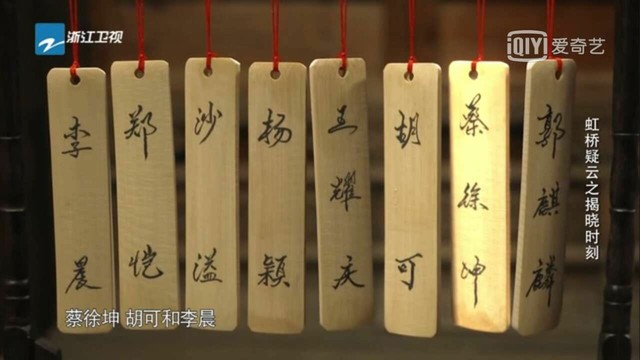 浙江卫视
iQIYI 爱奇艺
李晨
郑恺
沙溢
杨颖
王耀庆
胡可
蔡徐坤
郭麒麟
虹桥疑云之揭晓时刻
蔡徐坤 胡可和李晨